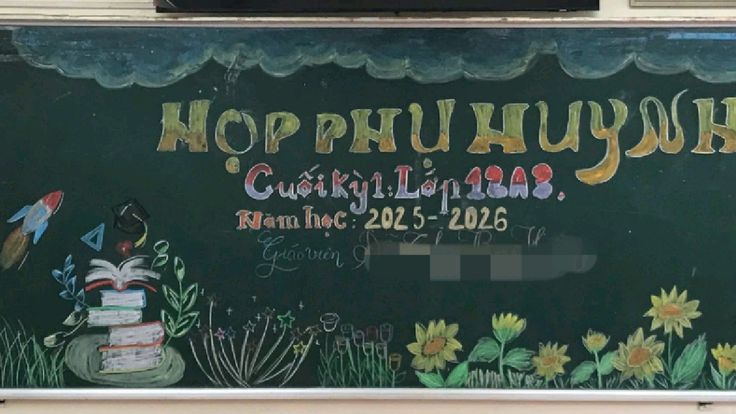 HỌP PHỤ HUYNH
Cuối kỳ 1: Lớp 12A8.
Năm học: 2025-2026
Giáo viên